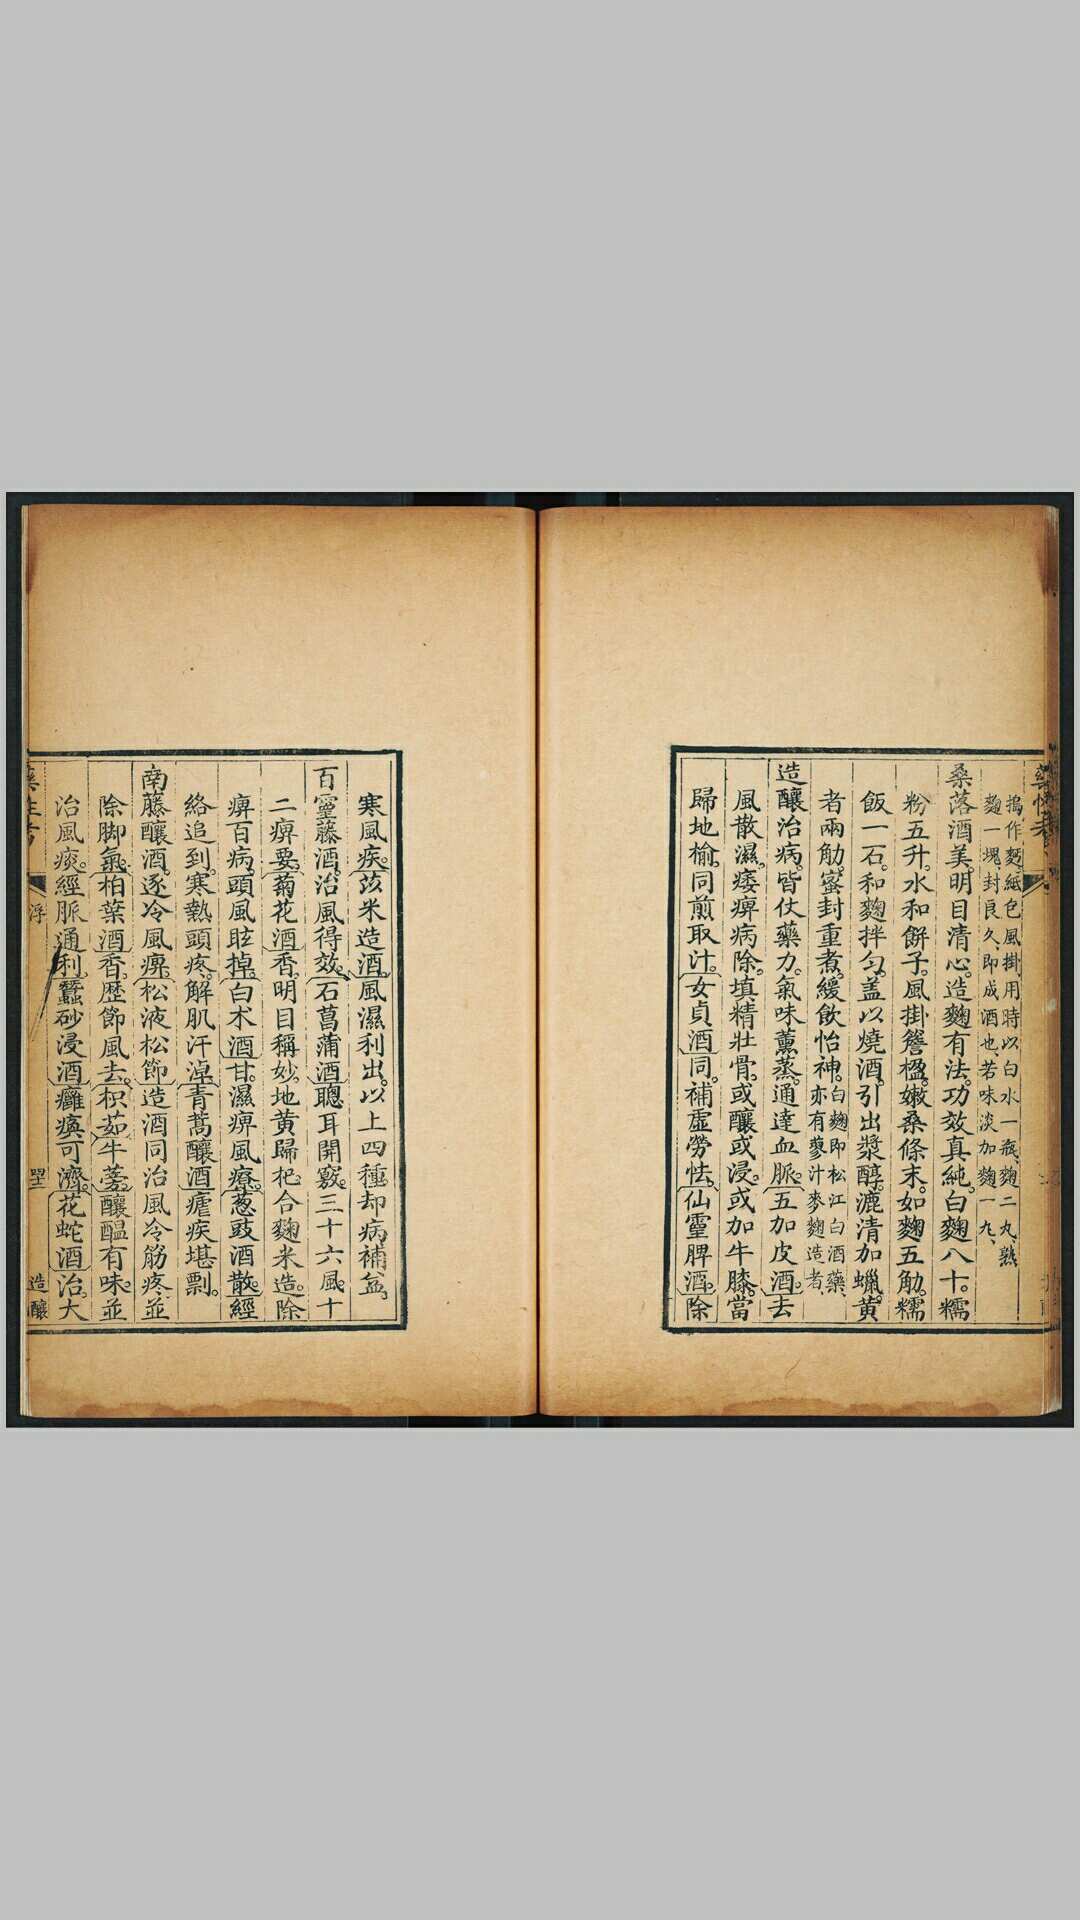 搗作麪紙包風掛用時以白水一瓶麹二丸熟
麹一塊封良久即成酒也若味淡加麹一九
桑落酒美。明目清心。造麹有法。功效真純。白麹八十。糯
粉五升。水和餅子。風掛簷楹。嫩桑條末。如麹五觔。糯
飯一石。和麹拌勻。蓋以燒酒。引出漿醇。漉清加蠟。黃
者兩觔。蜜封重煮。緩飲怡神。白麹即松江白酒藥、
亦有蓼汁麥麹造者、
造釀治病。皆仗藥力。氣味薰蒸。通達血脈。五加皮酒。去
風散濕。痿痹病除。填精壯骨。或釀或浸。或加牛膝。當
歸地榆。同煎取汁。女貞酒同。補虛勞怯。仙靈脾酒。除
寒風疾。苡米造酒。風濕利出。以上四種却病補益。
百靈藤酒。治風得效。石菖蒲酒聰耳開竅。三十六風。十
二痹要。菊花酒香。明目稱妙。地黃歸杞。合麴米造。除
痹百病。頭風眩掉。白朮酒甘。濕痹風療。葱豉酒散。經
絡追到。寒熱頭疼。解肌汗淖。青蒿釀酒。瘧疾堪剽。
南藤釀酒。逐冷風痹。松液松節。造酒同治。風冷筋疼。並
除脚氣。柏葉酒香。歷節風去。枳茹牛蒡。釀醖有味。並
治風痰。經脈通利。蠶砂浸酒。癱瘓可濟。花蛇酒治。大
浮
造釀